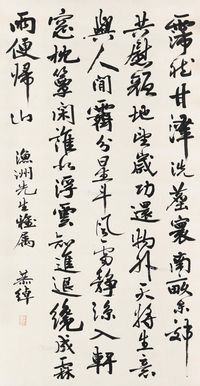 霈然甘澤洗塵寰南畝東郊
共慰顏地望歲功還物外天將生意
與人間霽分星斗風雷靜涼入軒
窓枕簟閑誰似浮雲知進退纔成霖
雨便歸山
漁洲先生雅属
恭綽